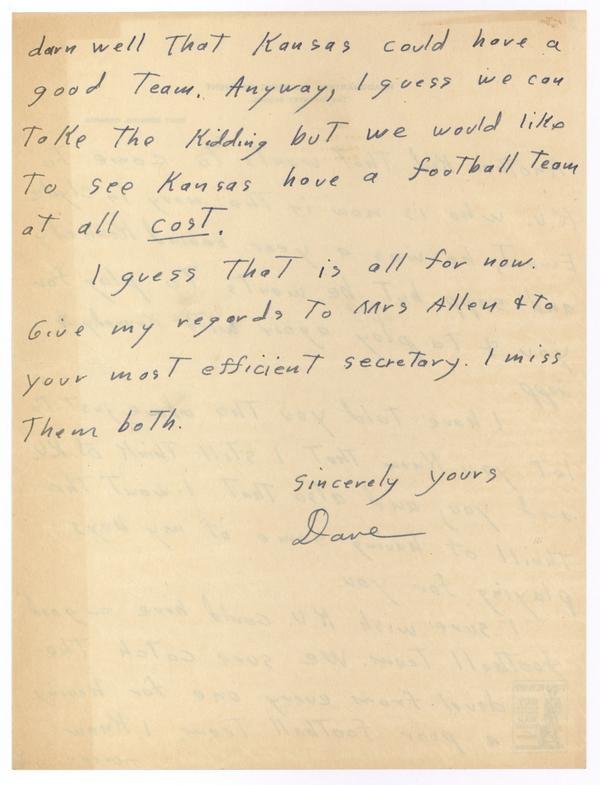 darn well That Kansas could have a
good Team. Anyway, I guess we can
Take The Kidding buT we would like
To see Kansas have a football Team
at all cosT.
I guess ThaT is all for now.
Give my regards To Mrs Allen & to
your most efficienT secretary. I miss
Them both.
Sincerely yours
Dave